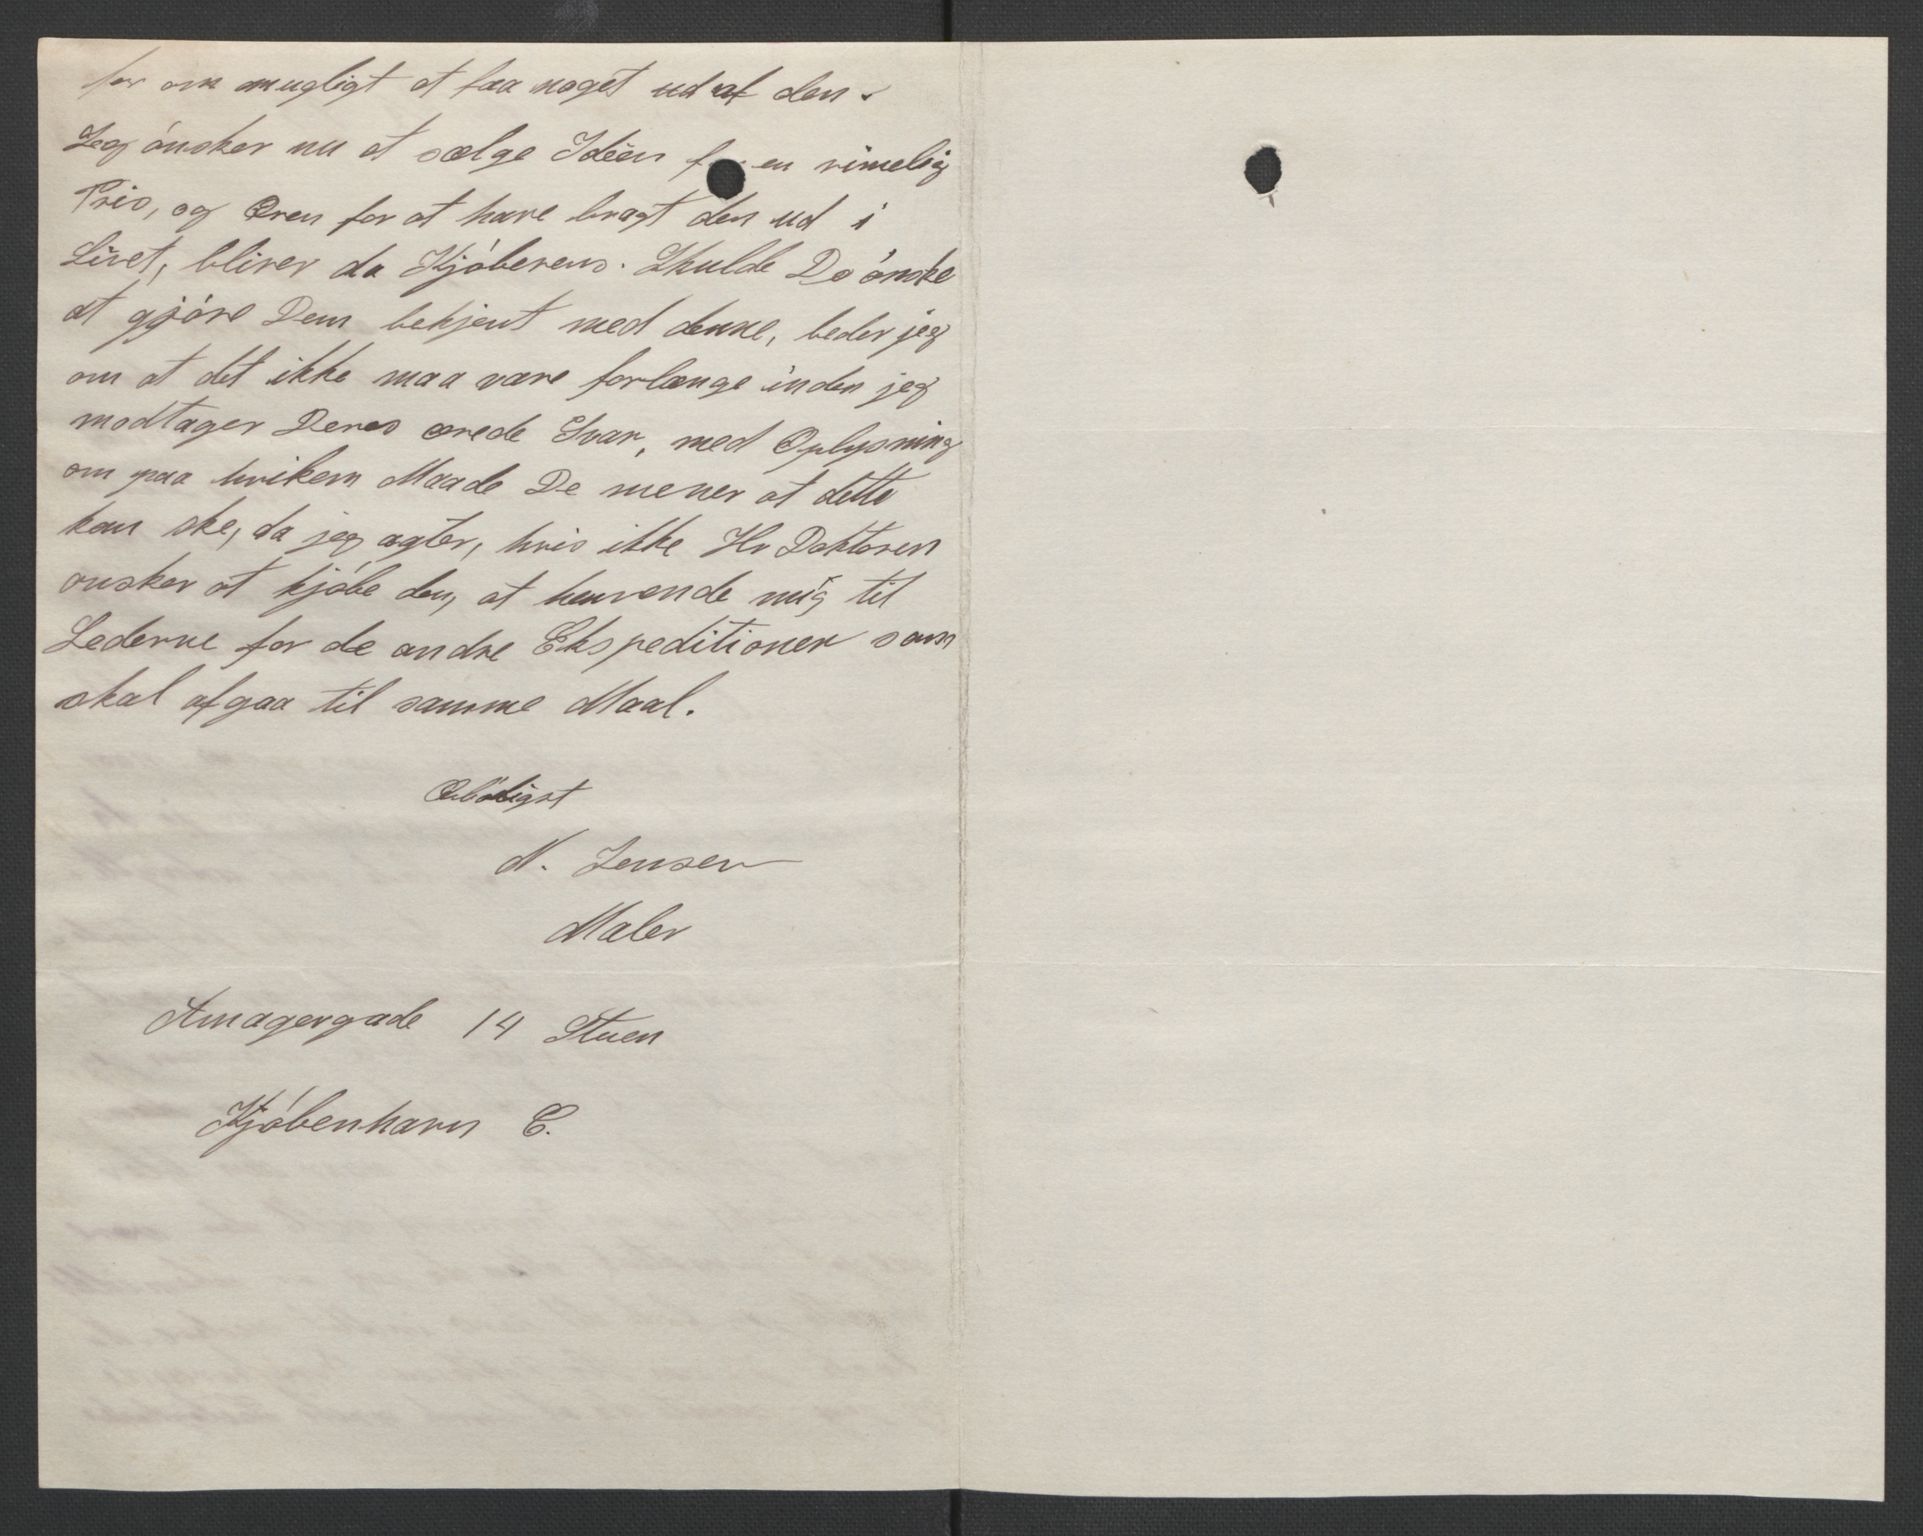 for om mugligt at faa noget ud af den.
Jeg ónsker nu at sælge Idéen for en rimelig
Pris, og Æren for at have bragt den ud i
Livet, bliver da Kjóberens. Skulde De ónske
at gjóre Dem bekjent med denne, beder jeg
om at det ikke maa være forlænge inden jeg
modtager Deres ærede Svar, med Oplysning
om paa hvilkem Maade De mener at dette
kan ske, da jeg agter, hvis ikke Hr Doktoren
onsker at kjóbe den, at henvende mig til
Lederne for de andre Ekspeditioner som
skal afgaa til samme Maal.
Ærbödigst
N. Jensen
Maler
Amagergade 14 Stuen
Kjóbenhavn C.